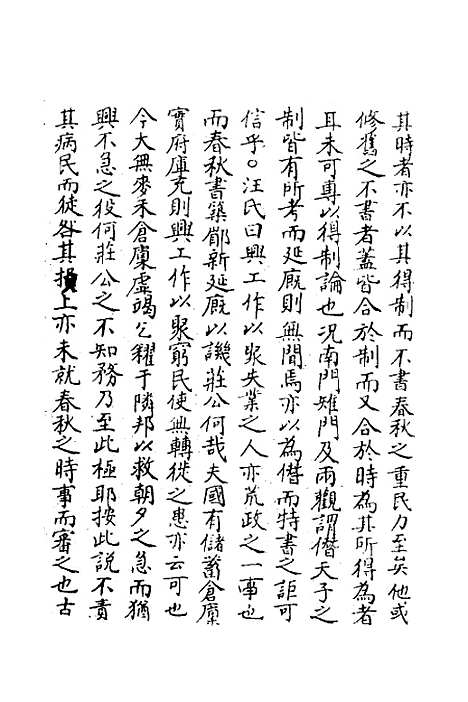 其時者亦不以其得制而不書春秋之重民力至矣他或
修舊之不書者蓋皆合於制而又合於時為其所得為者
耳未可專以得制論也况南門雉門及兩觀謂僭天子之
制皆有所考而延廐則無聞焉亦以為僭而特書之詎可
信乎○汪氏曰興工作以聚失業之人亦荒政之一事也
而春秋書築郿新延廐以譏莊公何哉夫國有儲蓄倉廩
實府庫充則興工作以聚窮民使無轉徙之患亦云可也
今大無麥禾倉廩虛竭乞糴于隣邦以救朝夕之急而猶
興不急之役何莊公之不知務乃至此極耶按此說不責
其病民而徒咎其損上亦未就春秋之時事而審之也古